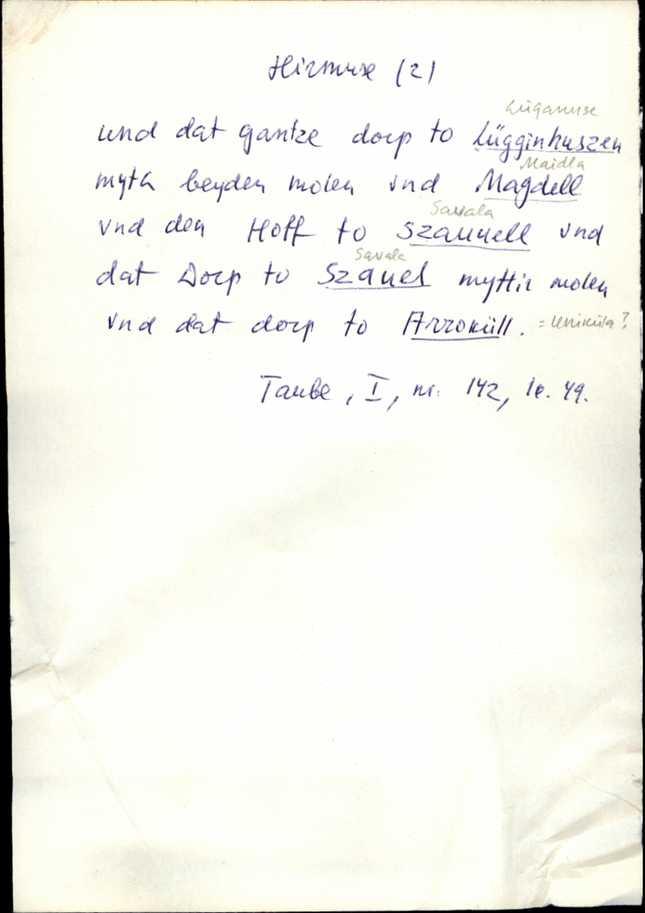 Hirmuse (2)
Lüganuse
und dat gantze dorp to Lügginhuszen
Maidla
myth beyden molen vnd Magdell
Savala
vnd den Hoff to Szauuell vnd
Savala
dat Dorp to Szauel myttir molen
vnd dat dorp to Arroküll. = Uniküla?
Taube, I, nr. 142, lk. 49.